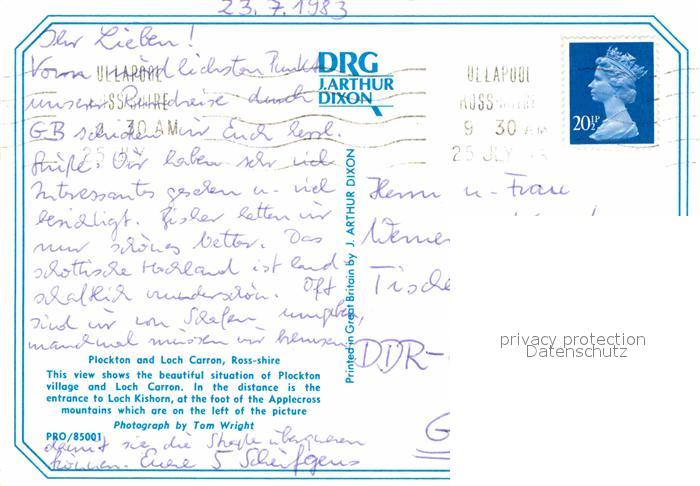 23.7.1983
Ihr Lieben!
Vom nördlichsten Punkt
unserer Rundreise durch
GB schicken wir Euch herzl.
Grüße. Wir haben sehr viel
Interessantes gesehen u. viel
besichtigt. Bisher hatten wir
nur schönes Wetter. Das
schottische Hochland ist land
schaftlich wunderschön. Oft
sind wir von Schafen umgeben,
manchmal müssen wir bremsen,
damit sie die Straße überqueren
können. Eure 5
Plockton and Loch Carron, Ross-shire
This view shows the beautiful situation of Plockton
village and Loch Carron. In the distance is the
entrance to Loch Kishorn, at the foot of the Applecross
mountains which are on the left of the picture
Photograph by Tom Wright
PRO/85001
DRG
J.ARTHUR
DIXON
Printed in Great Britain by J. ARTHUR DIXON
ULLAPOOL
ROSS-SHIRE
9 30 AM
25 JLY
ULLAPOOL
ROSS-SHIRE
9 30 AM
25 JLY
20½P
Herrn u. Frau
Werner
Tische
DDR-
G
privacy protection
Datenschutz